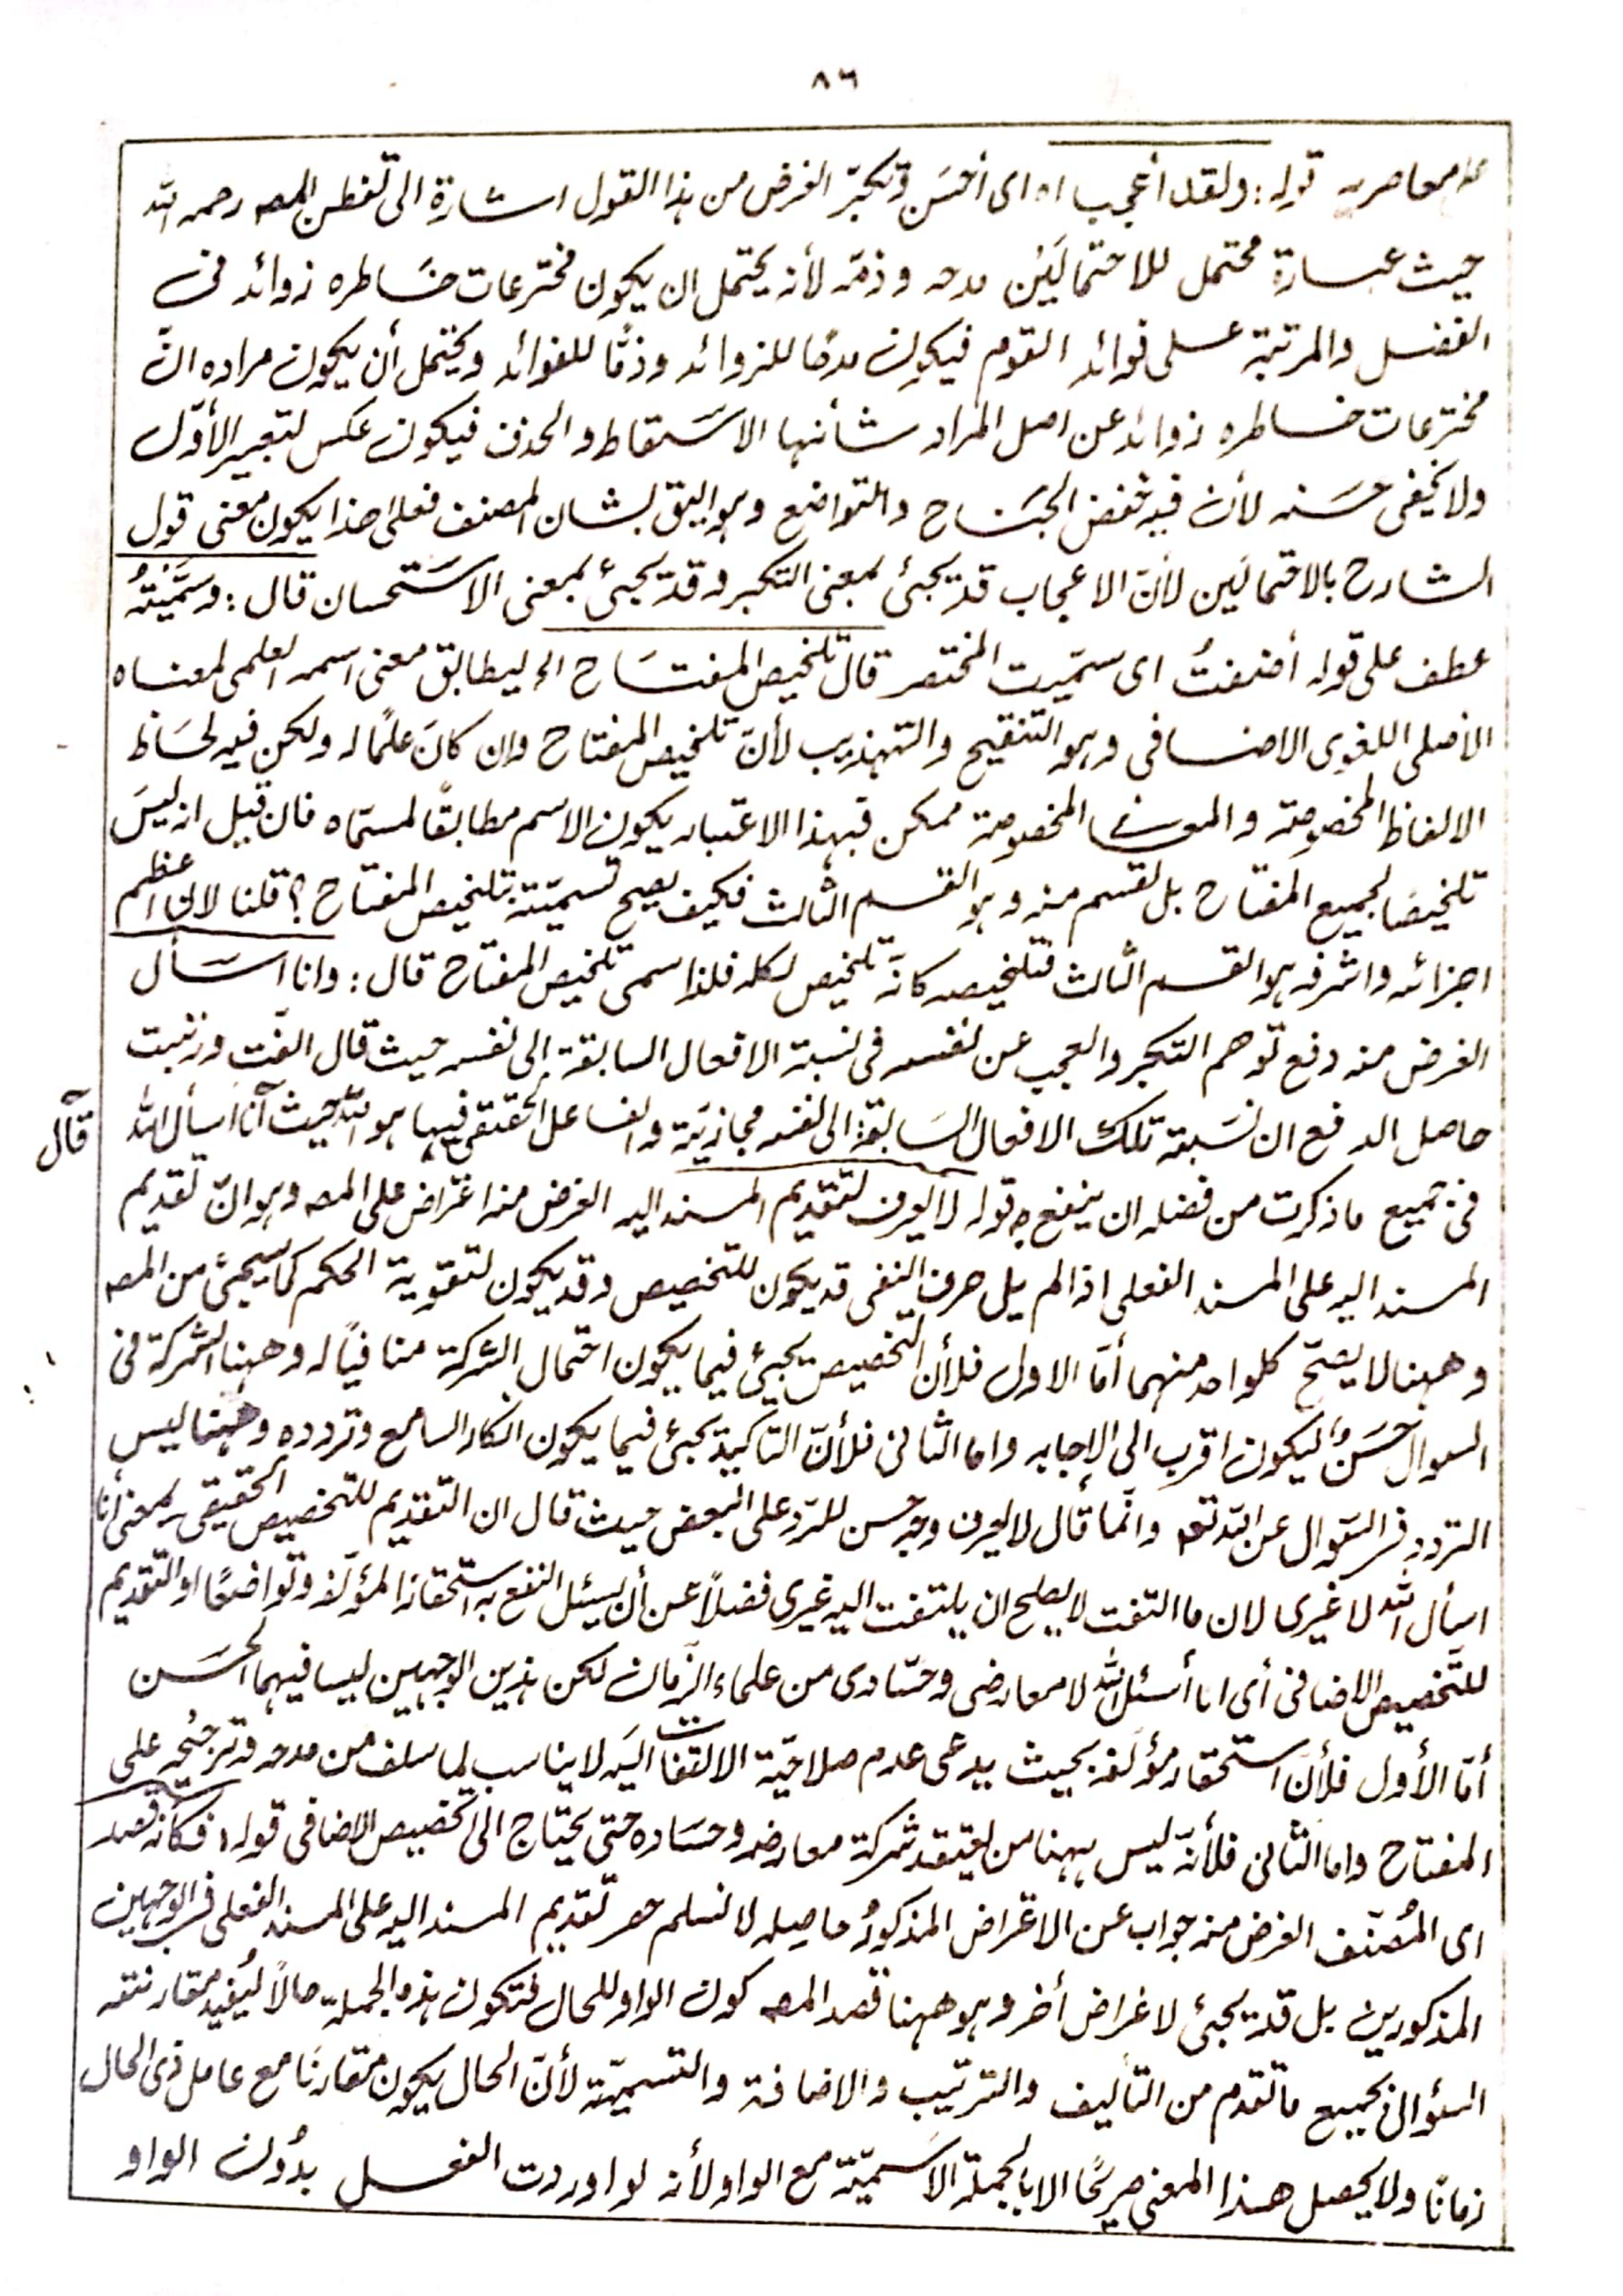 ٨٦
معاصريه قوله: ولقد أعجب اه اى أحسَن وتكبّر الغرض من هذا القول اشارة الى تفطن المصـ رحمه الله
حيث عبارة محتمل للاحتمالَين مدحه وذمّه لأنه يحتمل ان يكون مخترعات خاطره زوائد فى
الفضل والمرتبة على فوائد القوم فيكون مدحًا للزوائد وذمًّا للفوائد ويحتمل أن يكون مراده انّ
مخترعات خاطره زوائد عن اصل المراد شأنها الاسَقاط والحذف فيكون عكس لتعبير الأوّل
ولا يخفى حَسنه لأن فيه خفض الجَناح والتواضع وهو اليق بشان المصنف فعلى هذا يكون معنى قول
الشارح بالاحتمالَين لأنّ الاعجاب قد يجئ بمعنى التكبر وقد يجئ بمعنى الاسَتحسان قال: وسَمّيَتُه
عطف على قوله أضفتُ اى سمّيت المختصر قال تلخيص المفتَاح الخ ليطابق معنى اسمه العلمى لمعناه
الأصلى اللغوى الاضافى وهو التنقيح والتهذيب لأنّ تلخيص المفتاح وان كانَ علمًا له ولكن فيه لحَاظ
الالفاظ المخصوصة والمعنى المخصوصة ممكن فبهذا الاعتبار يكون الاسم مطابقًا لمسمّاه فان قيل انه ليسَ
تلخيصًا لجميع المفتاح بل لقسم منه وهو القسم الثالث فكيف يصح تسميّته بتلخيص المفتاح؟ قلنا لان اعظم
اجزائه واشرفه هو القسم الثالث فتلخيصه كانّه تلخيص لكله فلذا سمى تلخيص المفتاح قال: وانا اسَأل
الغرض منه دفع توهم التكبر والعجب عن نفسه فى نسبة الافعال السابقة إلى نفسه حيث قال الّفت ورتبت
حاصل الدفع ان نسَبة تلك الافعال السَابقة الى نفسه مجازيَة والفاعل الحقيقى فيها هو الله حيث أنا أسأل الله
قال
فى جميع ما ذكرت من فضله ان ينفع به قوله لا يعرف لتقديم المسند اليه الغرض منه اعتراض على المصـ وهو انّ تقديم
المسند اليه على المسند الفعلى اذا لم يل حرف النفى قد يكون للتخصيص وقد يكون لتقوية الحكم كما سيجئ من المصـ
وههنا لا يصحّ كلواحد منهما أمّا الاول فلأن التخصيص يجئ فيما يكون احتمال الشركة منافيًا له وههنا الشركة فى
السوال حَسَنٌ ليكون اقرب الى الإجابه واما الثانى فلأنّ التاكيد يجئ فيما يكون انكار السامع وتردده وههنا ليس
التردد فى السَوال عن الله تعـ وانّما قال لا يعرف وجه حسن للرّد على البعض حيث قال ان التقديم للتخصيص الحقيقى بمعنى أنا
اسأل الله لا غيرى لان ما التفت لا يصلح ان يلتفت اليه غيرى فضلًا عن أن يسئل النفع به استحقارًا لمؤلّفه وتواضعًا او التقديم
للتّخصيص الاضافى أى انا أسئل الله لا معارضى وحسّادى من علماء الزّمان لكن هذين الوجهين ليسا فيهما الحُسَن
أمّا الأول فلأنّ استحقار مؤلّفه بحيث يدعى عدم صلاحيّة الالتفات اليَه لا يناسب لما سلف من مدحه وترجيحه على
المفتاح واما الثانى فلأنّه ليس ههنا من يعتقد شركة معارضه وحسَاده حتى يحتاج الى تخصيص الاضافى قوله: فكأنّه قصد
اى المُصنّف الغرض منه جواب عن الاعتراض المذكورُ حاصله لا نسلم حصر تقديم المسند اليه على المسند الفعلى فى الوجهين
المذكورين بل قد يجئ لاغراض أخر وهو ههنا قصد المصـ كون الواو للحال فتكون هذه الجملة حالًا ليُفيد مقارنته
السئوال بجميع ما تقدم من التأليف والترتيب والاضافة والتسميّة لأنّ الحال يكون مقارنًا مع عامل ذى الحال
زمانًا ولا يحصل هذا المعنى صريحًا الا بالجملة الاسَميّة مع الواو لأنه لو اوردت الفعل بدُون الواو